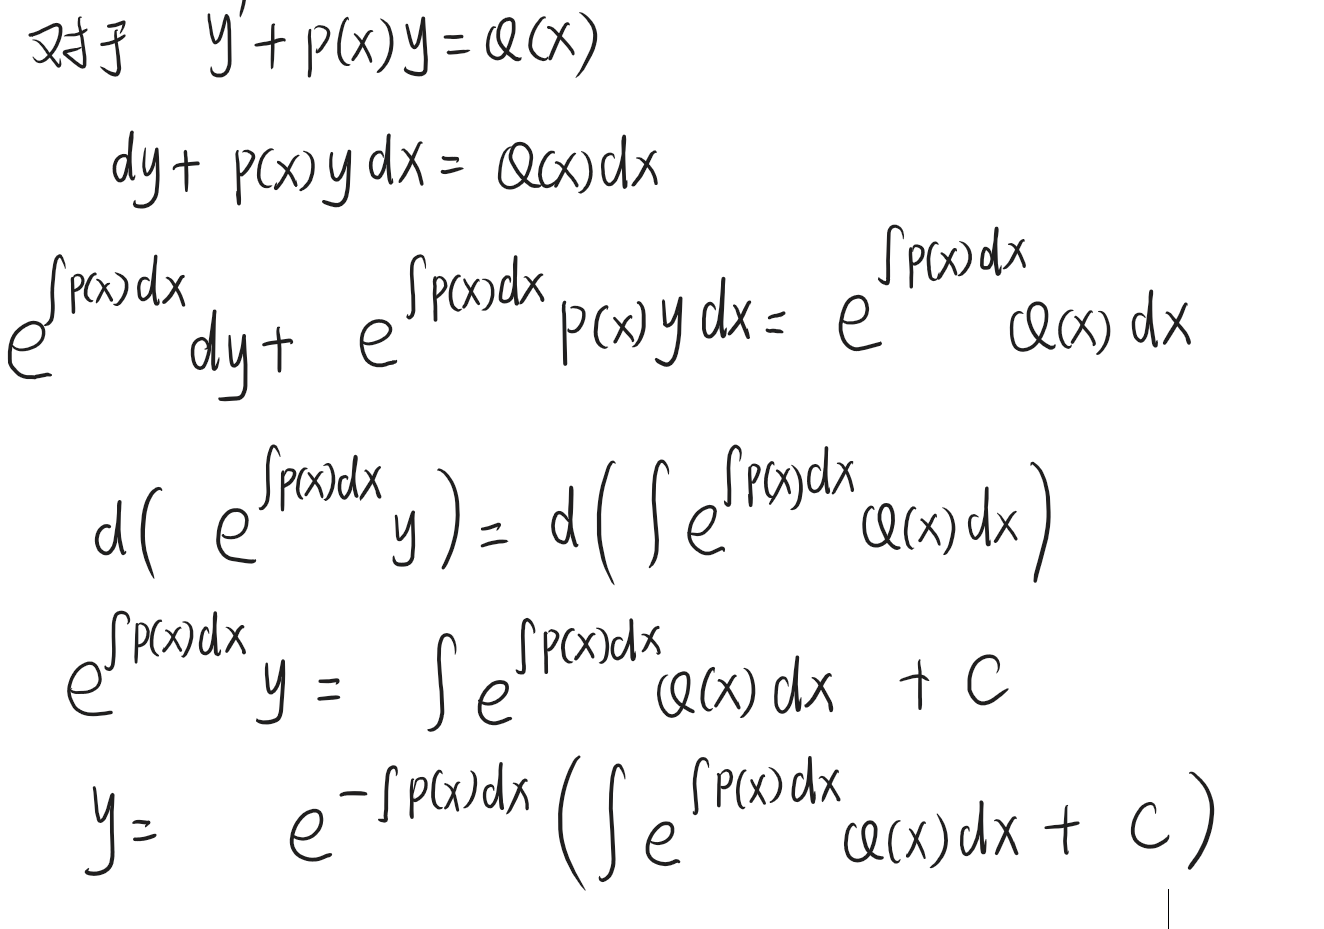 对于 y′+p(x)y=Q(x)
dy+ p(x)ydx= Q(x)dx
e^{∫p(x)dx}dy+ e^{∫p(x)dx}p(x)ydx= e^{∫p(x)dx}Q(x)dx
d(e^{∫p(x)dx}y)= d(∫e^{∫p(x)dx}Q(x)dx)
e^{∫p(x)dx}y= ∫e^{∫p(x)dx}Q(x)dx + C
y= e^{-∫p(x)dx}(∫e^{∫p(x)dx}Q(x)dx+ C)